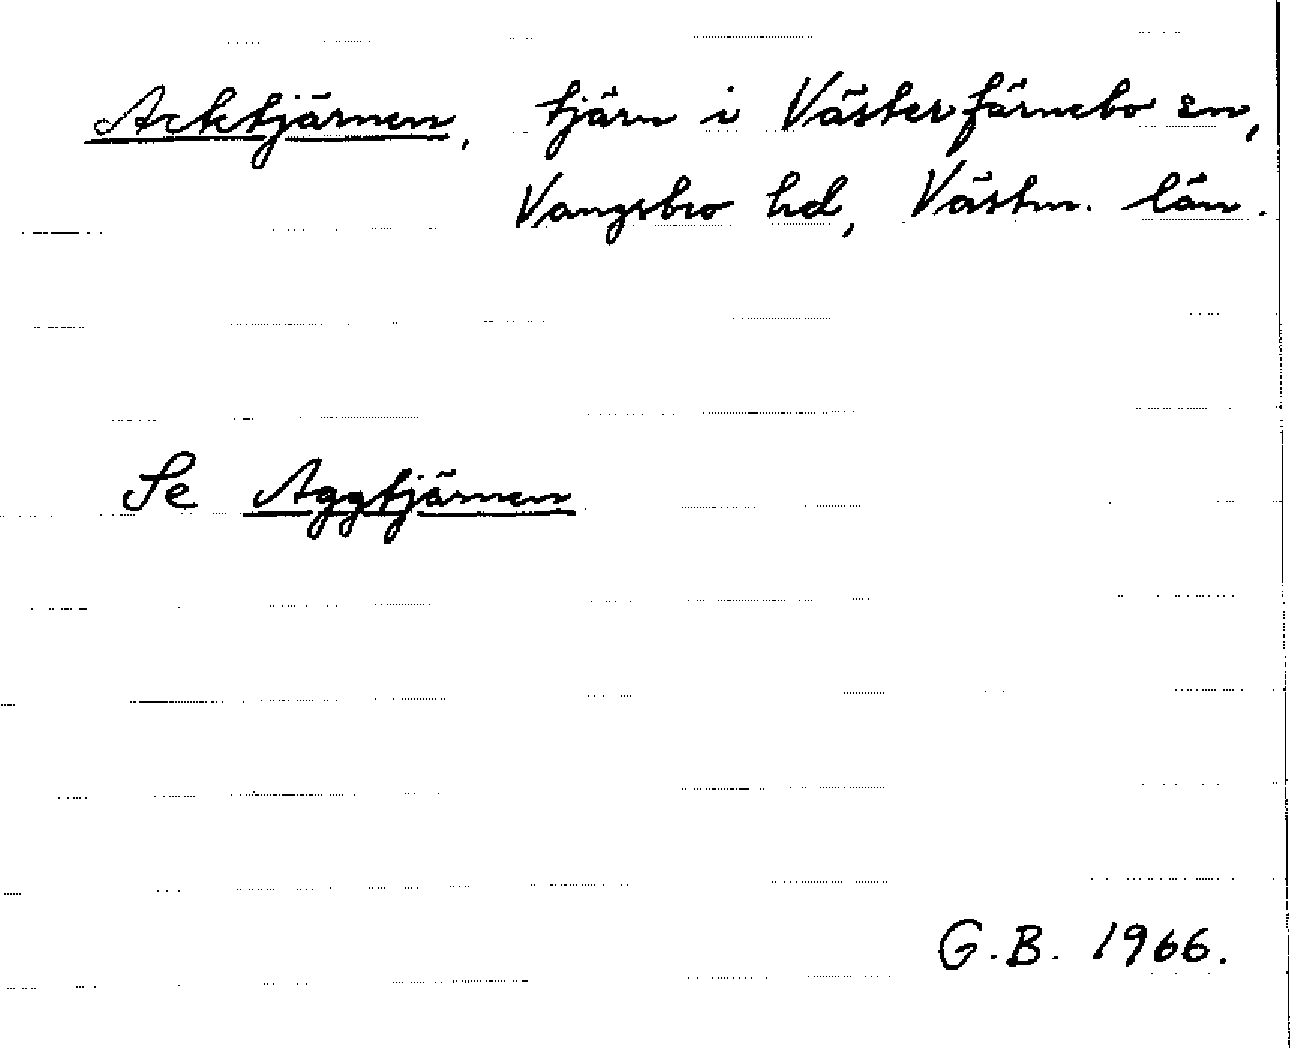 Acktjärnen, tjärn i Västerfärnebo sn,
Vangsbro hd, Västm. län.
Se Aggtjärnen
G.B. 1966.